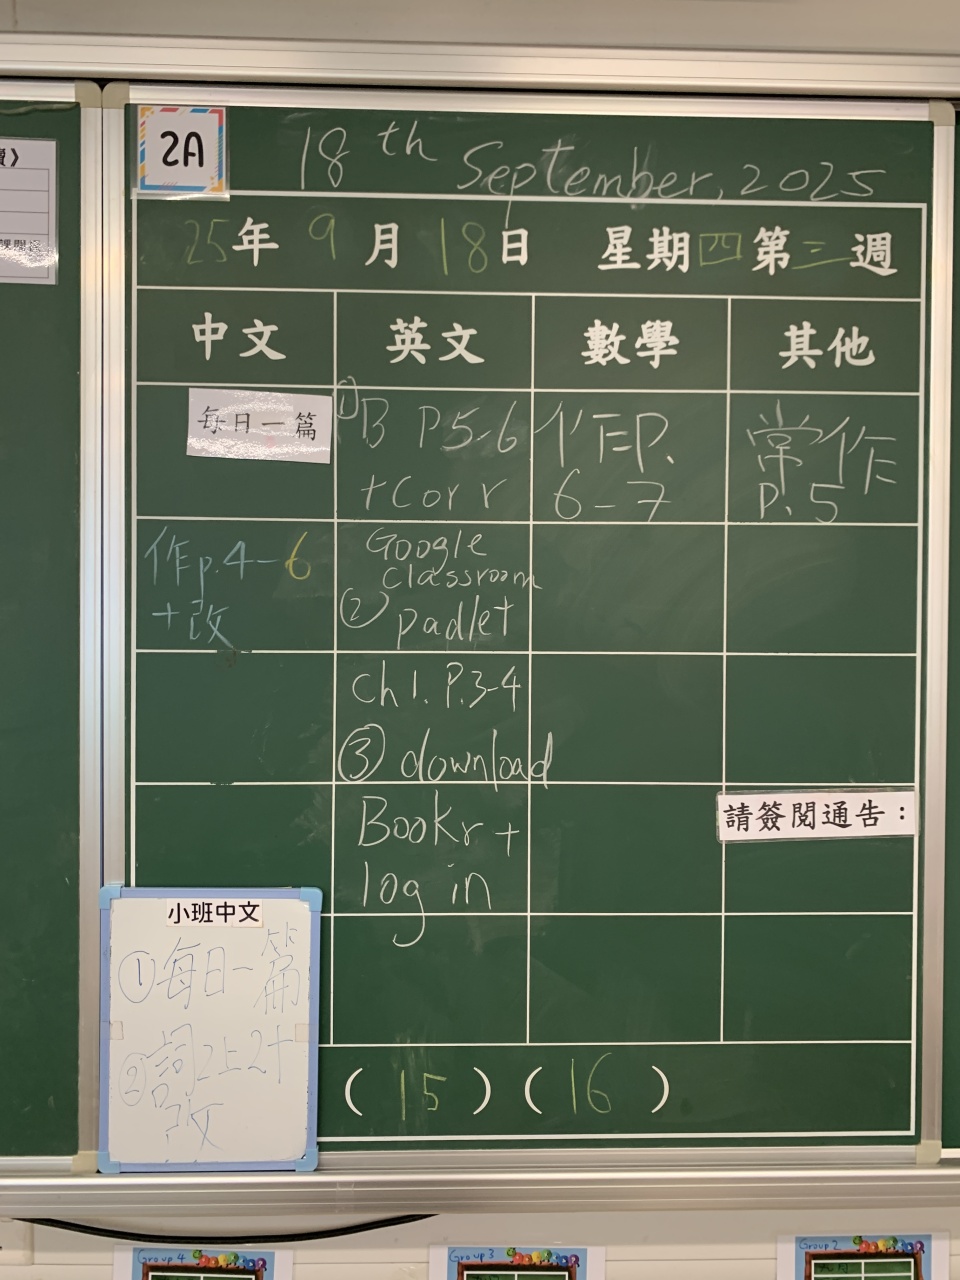 2A
18th September, 2025
25年 9月 18日 星期四 第三週
中文 英文 數學 其他
每日一篇
作p.4-6
+改
①B P5-6
+corr
Google
classroom
② padlet
ch1. P.3-4
③ download
Bookr +
log in
作P.
6-7
常作
P.5
請簽閱通告：
小班中文
①每日一篇
②詞2上2+
改
(15) (16)
Group 4
Group 3
Group 2